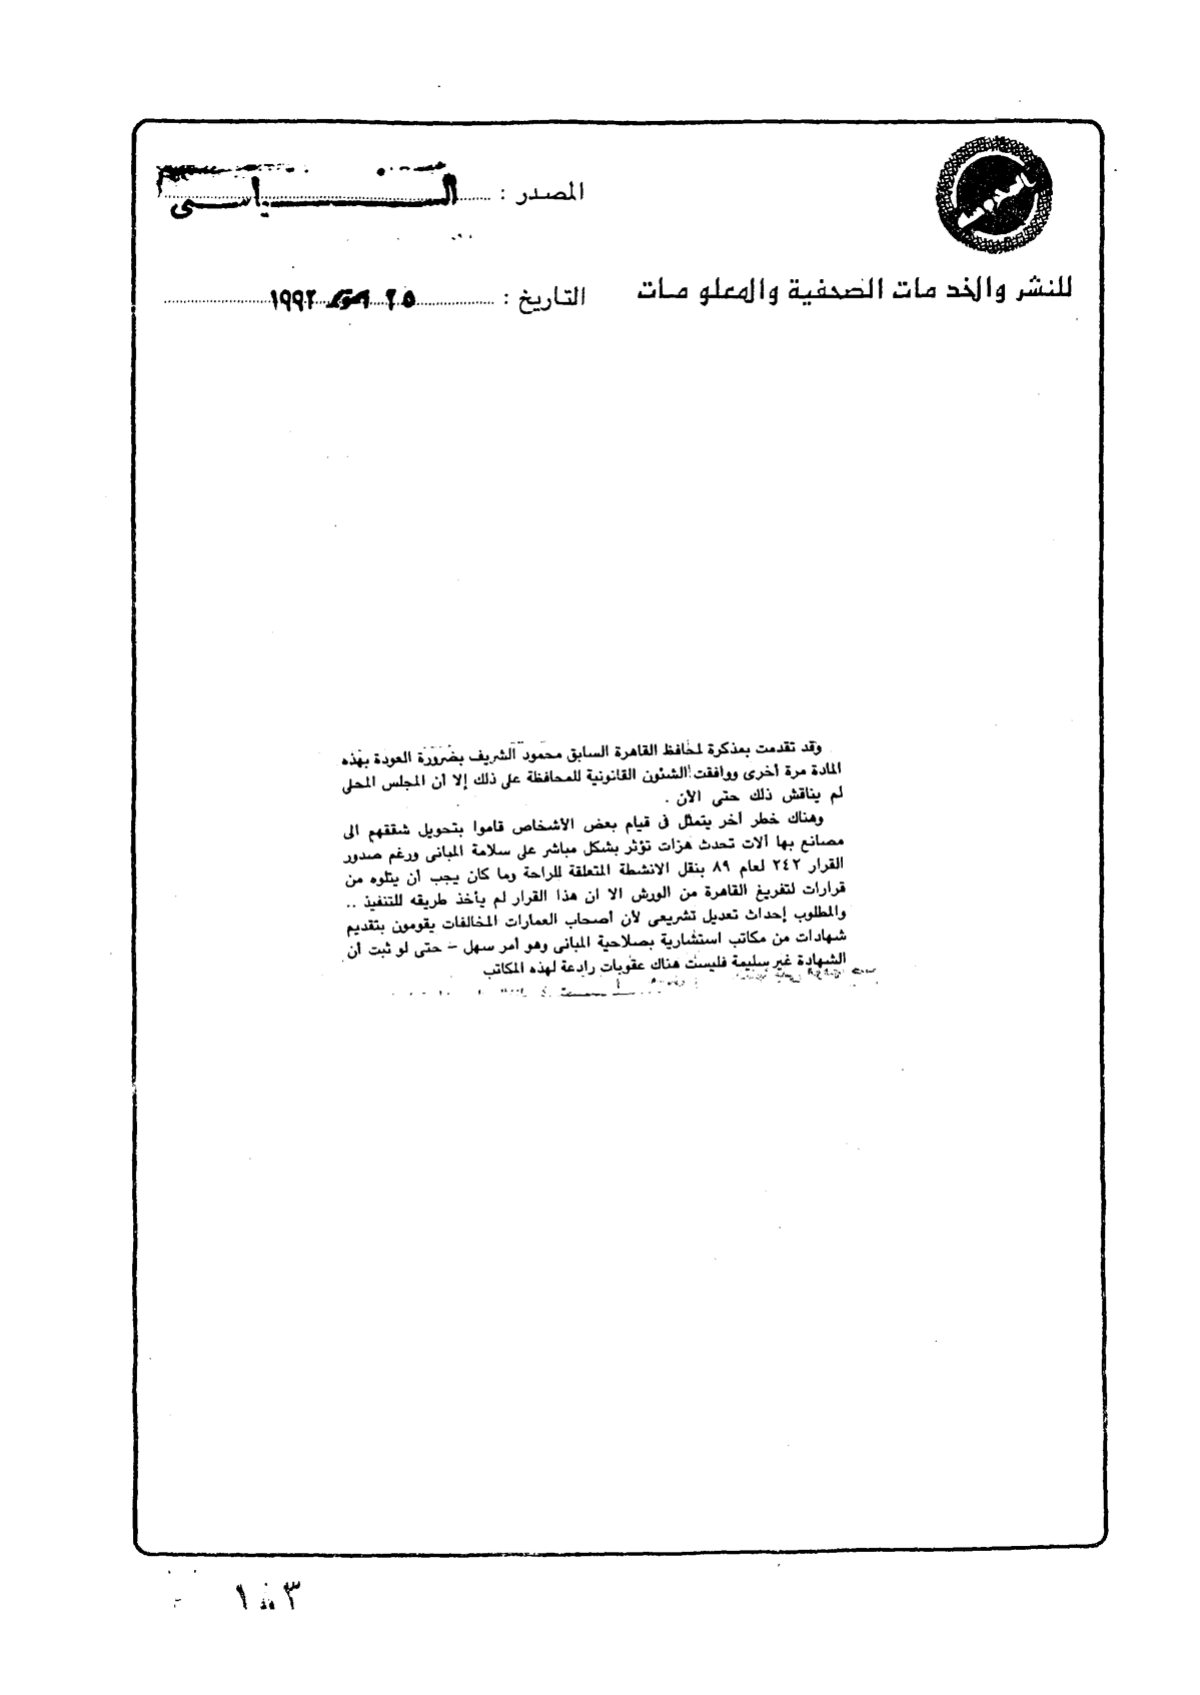 المصدر : السياسى
للنشر والخدمات الصحفية والمعلومات
التاريخ : ٢٥ أكتوبر ١٩٩٢
وقد تقدمت بمذكرة لمحافظ القاهرة السابق محمود الشريف بضرورة العودة بهذه
المادة مرة أخرى ووافقت الشئون القانونية للمحافظة على ذلك إلا أن المجلس المحلى
لم يناقش ذلك حتى الآن .
وهناك خطر آخر يتمثل فى قيام بعض الأشخاص قاموا بتحويل شققهم الى
مصانع بها آلات تحدث هزات تؤثر بشكل مباشر على سلامة المبانى ورغم صدور
القرار ٢٤٢ لعام ٨٩ بنقل الانشطة المتعلقة للراحة وما كان يجب أن يتلوه من
قرارات لتفريغ القاهرة من الورش الا ان هذا القرار لم يأخذ طريقه للتنفيذ ..
والمطلوب إحداث تعديل تشريعى لأن أصحاب العمارات المخالفات يقومون بتقديم
شهادات من مكاتب استشارية بصلاحية المبانى وهو أمر سهل - حتى لو ثبت أن
الشهادة غير سليمة فليست هناك عقوبات رادعة لهذه المكاتب